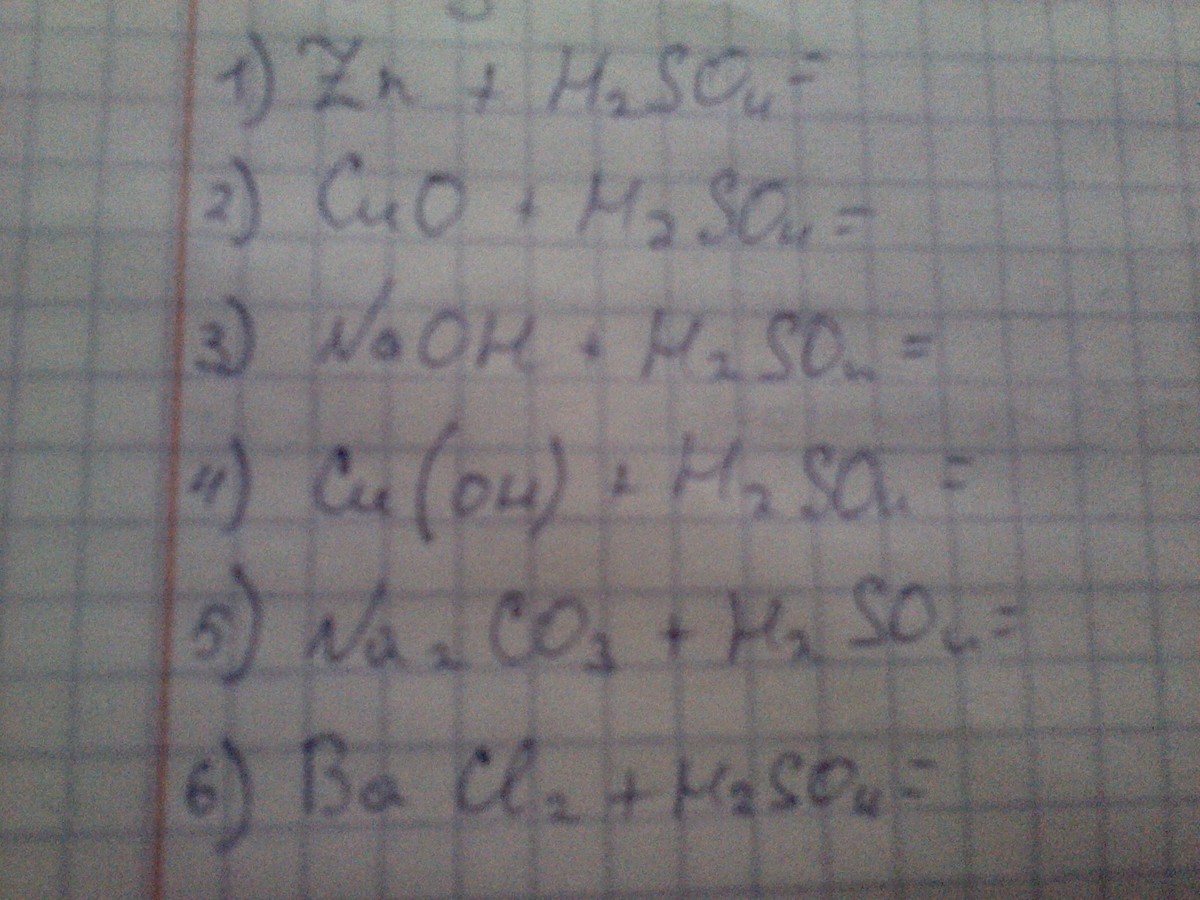 1) Zn + H₂SO₄ =
2) CuO + H₂SO₄ =
3) NaOH + H₂SO₄ =
4) Cu(OH) + H₂SO₄ =
5) Na₂CO₃ + H₂SO₄ =
6) BaCl₂ + H₂SO₄ =